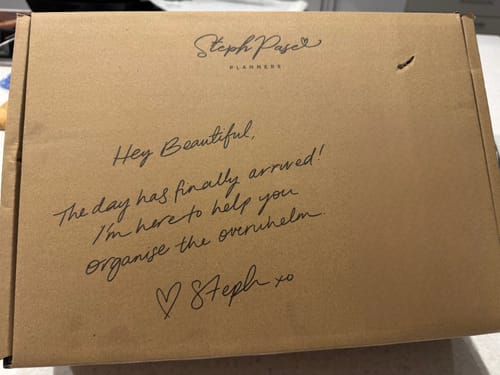 Steph Pase
PLANNERS
Hey Beautiful,
The day has finally arrived!
I'm here to help you
organise the overwhelm.
♡ Steph xo